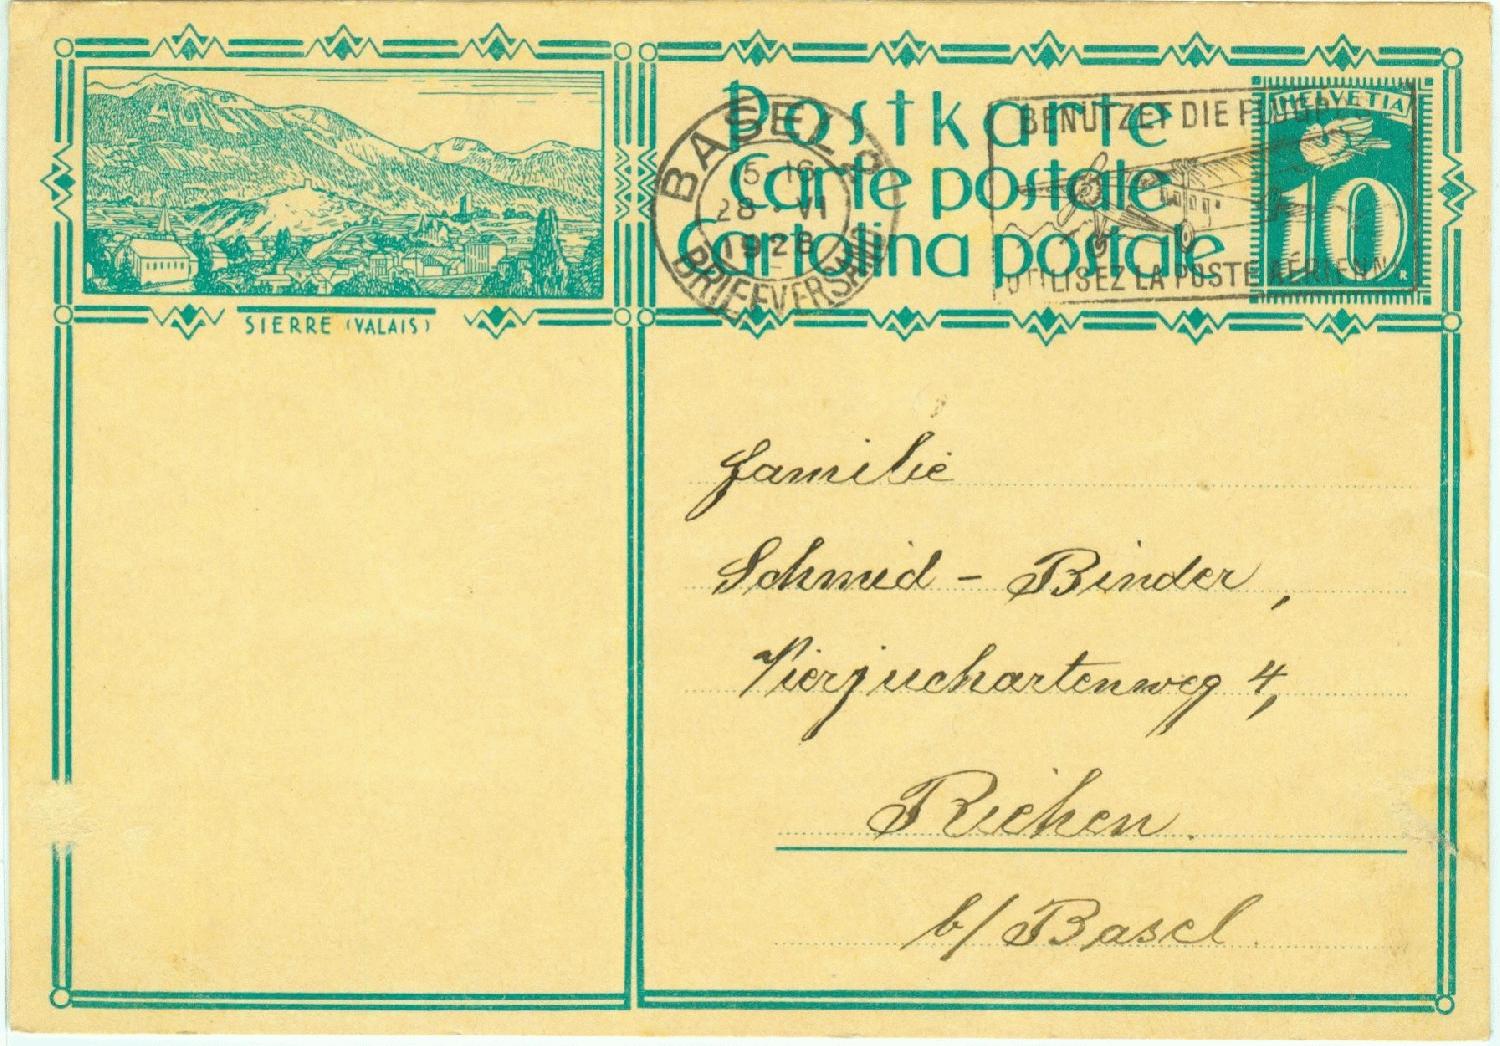 SIERRE (VALAIS)
Postkarte
Carte postale
Cartolina postale
BASEL 2
15-16
28·VI
1928
BRIEFVERSAND
BENÜTZET DIE
UTILISEZ LA POSTE AÉRIENNE
HELVETIA
10
Familie
Schmid - Binder,
Vierjuchartenweg 4,
Riehen.
b/ Basel.